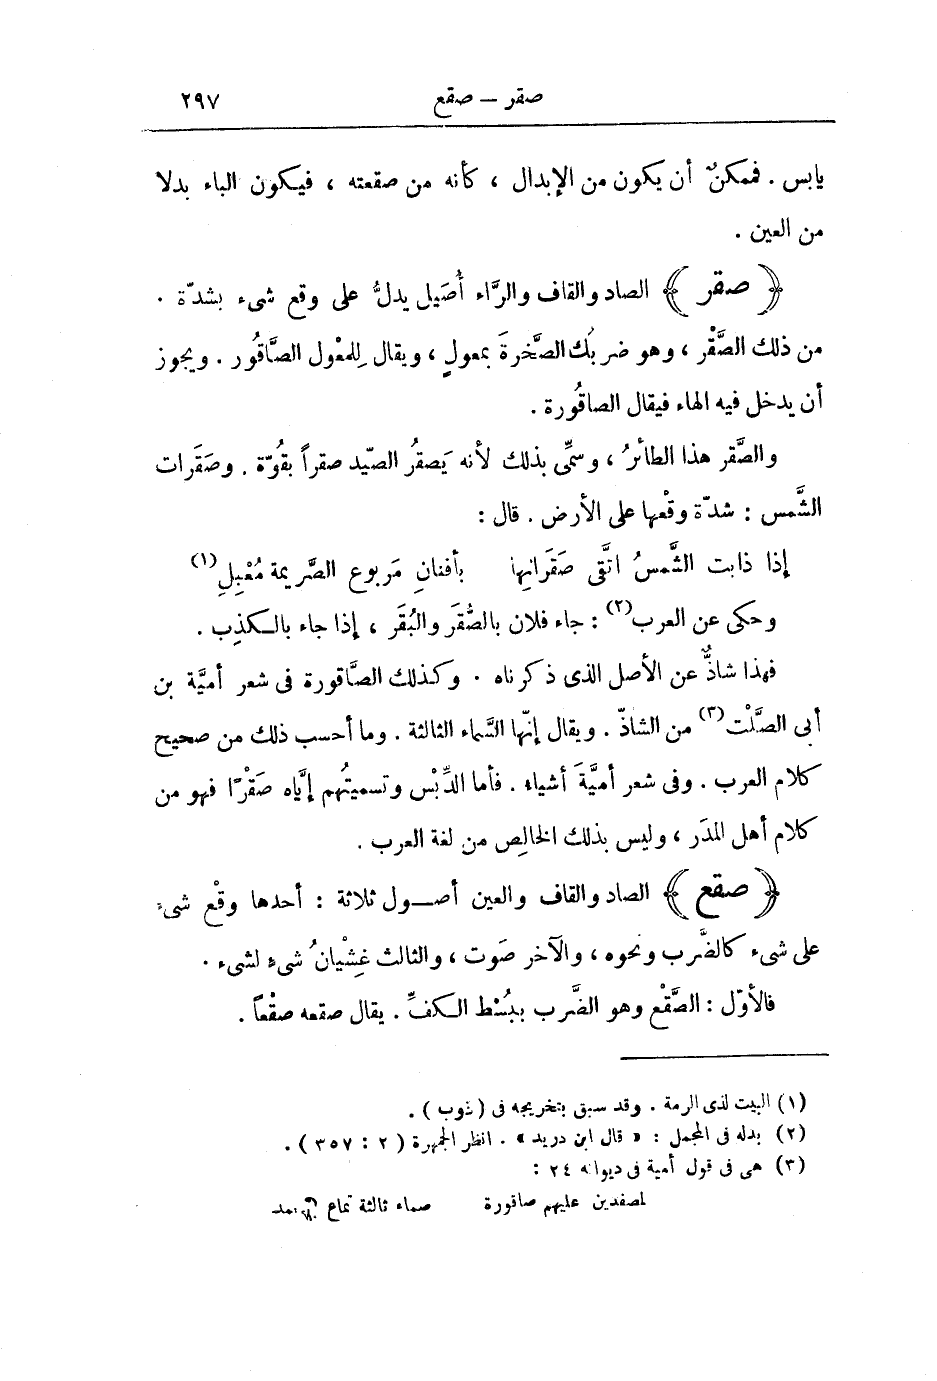 صقر — صقع ٢٩٧
يابس . فممكنٌ أن يكون من الإبدال ، كأنه من صقعته ، فيكون الباء بدلا
من العين .
﴿ صقر ﴾ الصاد والقاف والرَّاء أُصَيل يدلُّ على وقع شىء بشدّة .
من ذلك الصَّقْر ، وهو ضربُك الصَّخرةَ بمعولٍ ، ويقال لِلمعْول الصَّاقُور . ويجوز
أن يدخل فيه الهاء فيقال الصاقُورة .
والصَّقر هذا الطائرُ ، وسمِّى بذلك لأنه يَصقُر الصّيد صقراً بقُوّة . وصَقَرات
الشَّمس : شدّة وقْعها على الأرض . قال :
إذا ذابت الشَّمسُ اتَّقى صَقَراتِها بأفنانِ مَربوع الصَّريمة مُعْبِلِ (١)
وحكى عن العرب (٢) : جاء فلان بالصُّقَر والبُقَر ، إذا جاء بالكذِب .
فهذا شاذٌّ عن الأصل الذى ذكرناه . وكذلك الصَّاقورة فى شعر أميَّة بن
أبى الصَّلْت (٣) من الشاذّ . ويقال إنّها السَّماء الثالثة . وما أحسب ذلك من صحيح
كلام العرب . وفى شعر أميَّةَ أشياء . فأما الدِّبْس وتسميتُهم إيَّاه صَقْرًا فهو من
كلام أهل المدَر ، وليس بذلك الخالِص من لغة العرب .
﴿ صقع ﴾ الصاد والقاف والعين أصول ثلاثة : أحدها وقْع شىء
على شىء كالضَّرب ونحوه ، والآخر صَوت ، والثالث غِشْيانُ شىءٍ لشىء .
فالأوّل : الصَّقْع وهو الضَّرب ببُسْط الكفِّ . يقال صقعه صقْعاً .
(١) البيت لذى الرمة . وقد سبق بتخريجه فى (ذوب) .
(٢) بدله فى المجمل : « قال ابن دريد » . انظر الجمهرة ( ٢ : ٣٥٧ ) .
(٣) هى فى قول أمية فى ديوانه ٢٤ :
لمصفدين عليهم صاقورة صماء ثالثة تماع